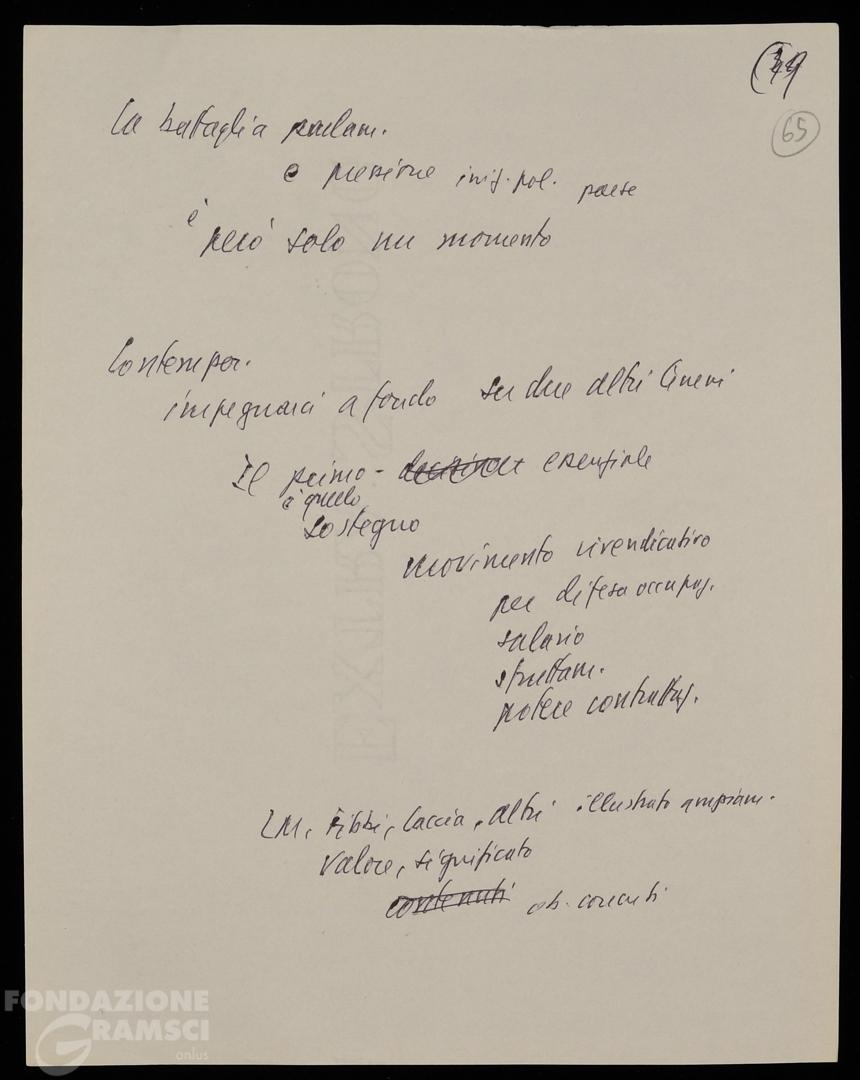 49
65
La battaglia parlam.
e pressione iniz. pol. paese
è
però solo un momento
Contempor.
impegnarci a fondo su due altri terreni
Il primo - decisivo essenziale
è quello
sostegno
movimento rivendicativo
per difesa occupaz.
salario
sfruttam.
potere contrattuaz.
LM, Fibbi, Caccia, altri illustrato ampiam.
valore, significato
contenuti ob. concreti
FONDAZIONE
GRAMSCI
onlus